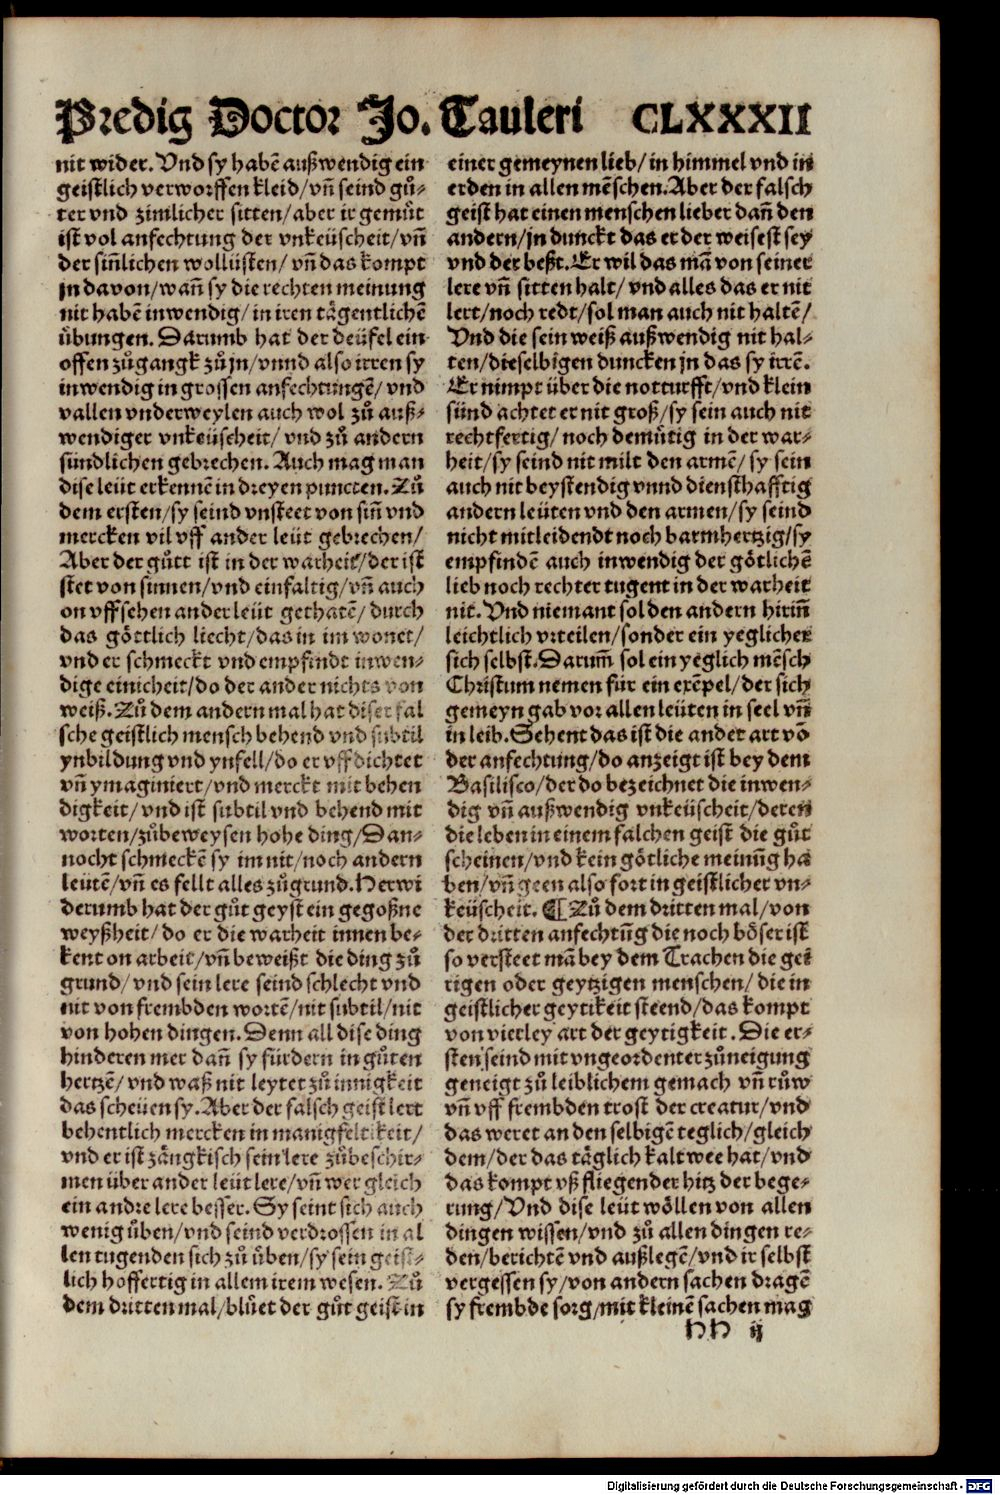 Predig Doctor Jo. Tauleri CLXXXII
nit wider. Vnd sy habē außwendig ein
geistlich verworffen kleid/ vñ seind gů-
ter vnd zimlicher sitten/ aber ir gemůt
ist vol anfechtung der vnkeüscheit/ vñ
der siñlichen wollüsten/ vñ das kompt
jn davon/ wañ sy die rechten meinung
nit habē inwendig/ in iren tägentlichē
übungen. Darumb hat der deüfel ein
offen zůgangk zů jn/ vnnd also irren sy
inwendig in grossen anfechtungē/ vnd
vallen vnderweylen auch wol zů auß-
wendiger vnkeüscheit/ vnd zů andern
sündlichen gebrechen. Auch mag man
dise leüt erkennē in dreyen puncten. Zů
dem ersten/ sy seind vnsteet von siñ vnd
mercken vil vff ander leüt gebrechen/
Aber der gůtt ist in der warheit/ der ist
stet von sinnen/ vnd einfaltig/ vñ auch
on vffsehen ander leüt gethatē/ durch
das göttlich liecht/ das in im wonet/
vnd er schmeckt vnd empfindt inwen-
dige einicheit/ do der ander nichts von
weiß. Zů dem andern mal hat diser fal
sche geistlich mensch behend vnd subtil
ynbildung vnd ynfell/ do er vff dichtet
vñ ymaginiert/ vnd merckt mit behen
digkeit/ vnd ist subtil vnd behend mit
worten/ zůbeweysen hohe ding/ Dan-
nocht schmeckē sy im nit/ noch andern
leütē/ vñ es fellt alles zůgrund. Herwi
derumb hat der gůt geyst ein gegoßne
weyßheit/ do er die warheit innen be-
kent on arbeit/ vñ beweißt die ding zů
grund/ vnd sein lere seind schlecht vnd
nit von frembden wortē/ nit subtil/ nit
von hohen dingen. Denn all dise ding
hinderen mer dañ sy fürdern in gůten
hertzē/ vnd waß nit leytet zů innigkeit
das scheüen sy. Aber der falsch geist lert
behentlich mercken in manigfeltikeit/
vnd er ist zängkisch sein lere zůbeschir-
men über ander leüt lere/ vñ wer gleich
ein andre lere besser. Sy seint sich auch
wenig üben/ vnd seind verdrossen in al
len tugenden sich zů üben/ sy sein geist-
lich hoffertig in allem irem wesen. Zů
dem dritten mal/ blüet der gůt geist in
einer gemeynen lieb/ in himmel vnd in
erden in allen mēschen. Aber der falsch
geist hat einen menschen lieber dañ den
andern/ jn dunckt das er der weisest sey
vnd der beßt. Er wil das mā von seiner
lere vñ sitten halt/ vnd alles das er nit
lert/ noch redt/ sol man auch nit haltē/
Vnd die sein weiß außwendig nit hal-
ten/ dieselbigen duncken jn das sy irrē.
Er nimpt über die notturfft/ vnd klein
sünd achtet er nit groß/ sy sein auch nit
rechtfertig/ noch demütig in der war-
heit/ sy seind nit milt den armē/ sy sein
auch nit beystendig vnnd diensthafftig
andern leüten vnd den armen/ sy seind
nicht mitleidendt noch barmhertzig/ sy
empfindē auch inwendig der götlichē
lieb noch rechter tugent in der warheit
nit. Vnd niemant sol den andern hiriñ
leichtlich vrteilen/ sonder ein yeglicher
sich selbst. Darum̄ sol ein yeglich mēsch
Christum nemen für ein exēpel/ der sich
gemeyn gab vor allen leüten in seel vñ
in leib. Sehent das ist die ander art vō
der anfechtung/ do anzeigt ist bey dem
Basilisco/ der do bezeichnet die inwen-
dig vñ außwendig vnkeüscheit/ deren
die leben in einem falchen geist die gůt
scheinen/ vnd kein götliche meinūg ha
ben/ vñ geen also fort in geistlicher vn-
keüscheit. ¶ Zů dem dritten mal/ von
der dritten anfechtūg die noch böser ist
so versteet mā bey dem Trachen die gei
rigen oder geytzigen menschen/ die in
geistlicher geytikeit steend/ das kompt
von vierley art der geytigkeit. Die er-
sten seind mit vngeordenter zůneigung
geneigt zů leiblichem gemach vñ růw
vñ vff frembden trost der creatur/ vnd
das weret an den selbigē teglich/ gleich
dem/ der das täglich kalt wee hat/ vnd
das kompt vß fliegender hitz der bege-
rung/ Vnd dise leüt wöllen von allen
dingen wissen/ vnd zů allen dingen re-
den/ berichtē vnd außlegē/ vnd ir selbst
vergessen sy/ von andern sachen dragē
sy frembde sorg/ mit kleinē sachen mag
HH ij
Digitalisierung gefördert durch die Deutsche Forschungsgemeinschaft - DFG